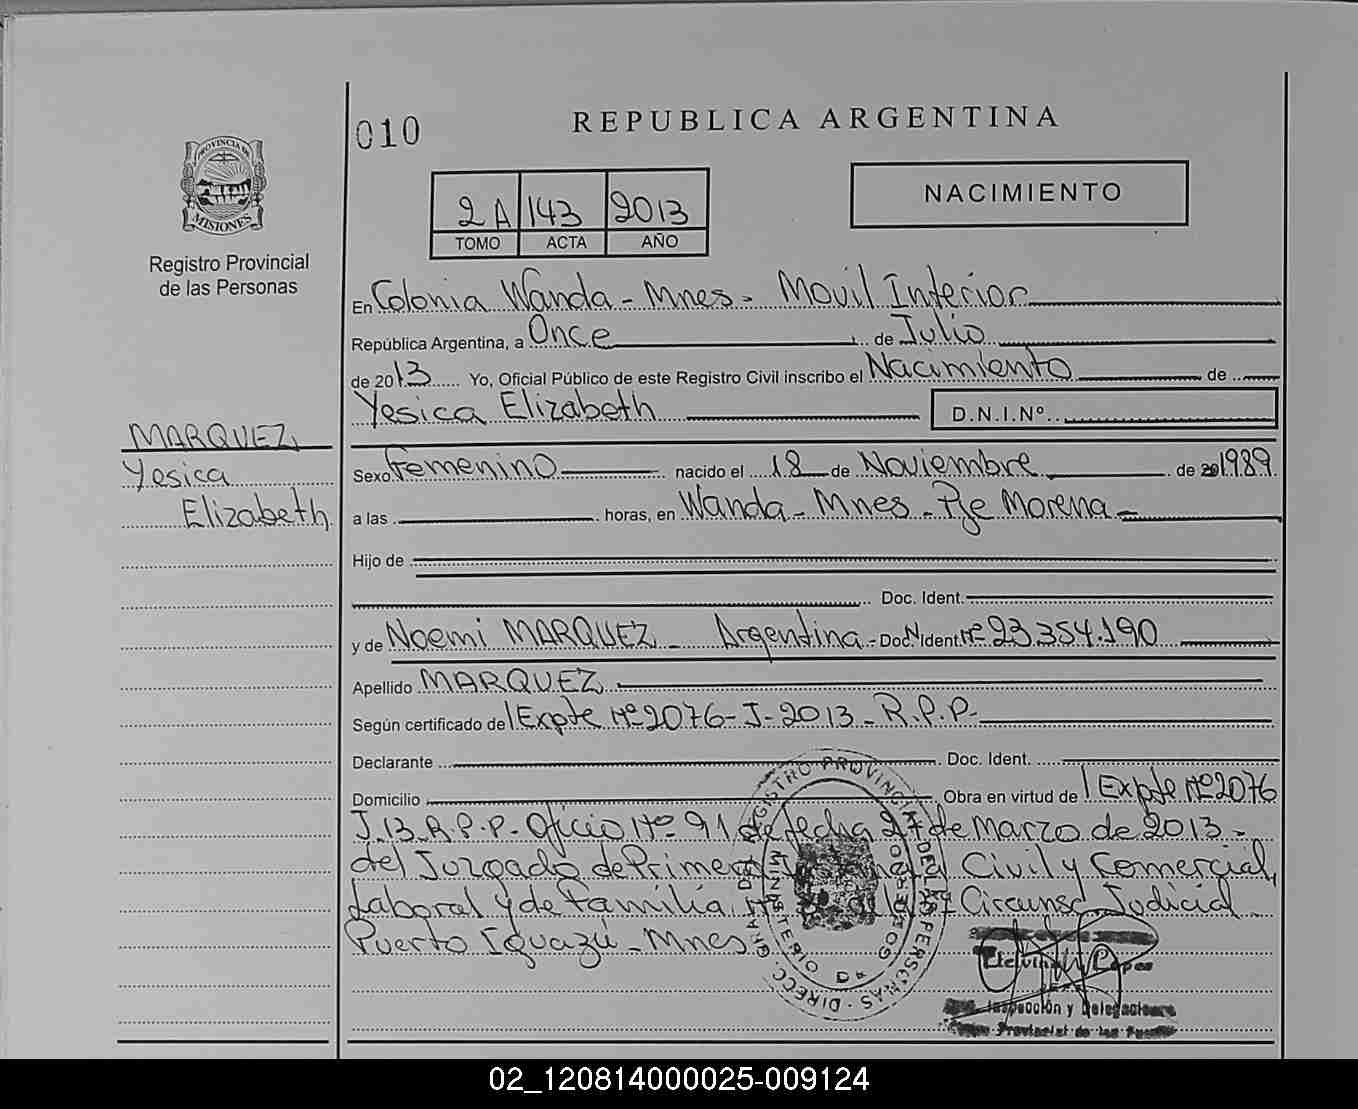 010
REPUBLICA ARGENTINA
PROVINCIA DE
MISIONES
Registro Provincial
de las Personas
2A 143 2013
TOMO ACTA AÑO
NACIMIENTO
En Colonia Wanda - Mnes - Movil Interior
República Argentina, a Once de Julio
de 2013 Yo, Oficial Público de este Registro Civil inscribo el Nacimiento de
Yesica Elizabeth D.N.I.Nº
MARQUEZ
Yesica
Elizabeth
Sexo Femenino nacido el 18 de Noviembre de 1989
a las horas, en Wanda - Mnes - Pje Morena
Hijo de
Doc. Ident.
y de Noemi MARQUEZ - Argentina - Doc. Ident Nº 23.354.190
Apellido MARQUEZ
Según certificado de Expte Nº 2076-J-2013-R.P.P.
Declarante Doc. Ident.
Domicilio Obra en virtud de Expte Nº 2076
J.13.R.P.P. Oficio Nº 91 de fecha 27 de Marzo de 2013 -
del Juzgado de Primera Civil y Comercial,
Laboral y de Familia Circunsc. Judicial
Puerto Iguazú - Mnes
DIRECC. GRAL. DEL REGISTRO PROVINCIAL DE LAS PERSONAS
MINISTERIO DE GOBIERNO
Etelvina López
Inspección y Delegaciones
Provincial de las
02_120814000025-009124